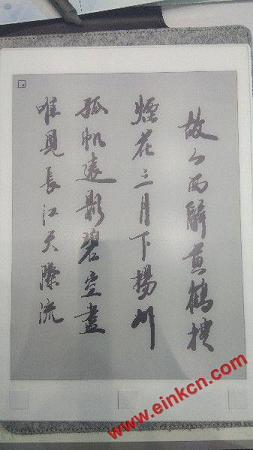 故人西辭黃鶴樓
煙花三月下揚州
孤帆遠影碧空盡
唯見長江天際流
www.einkcn.com